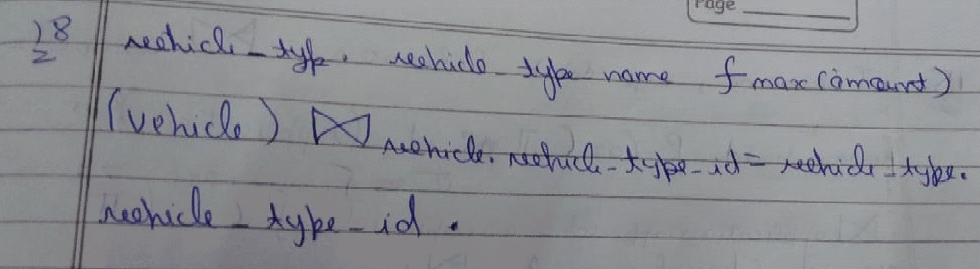 Page
18 vehicle_type. vehicle_type name f max(amount)
(vehicle) ⋈ vehicle. vehicle_type_id = vehicle_type.
vehicle_type_id.